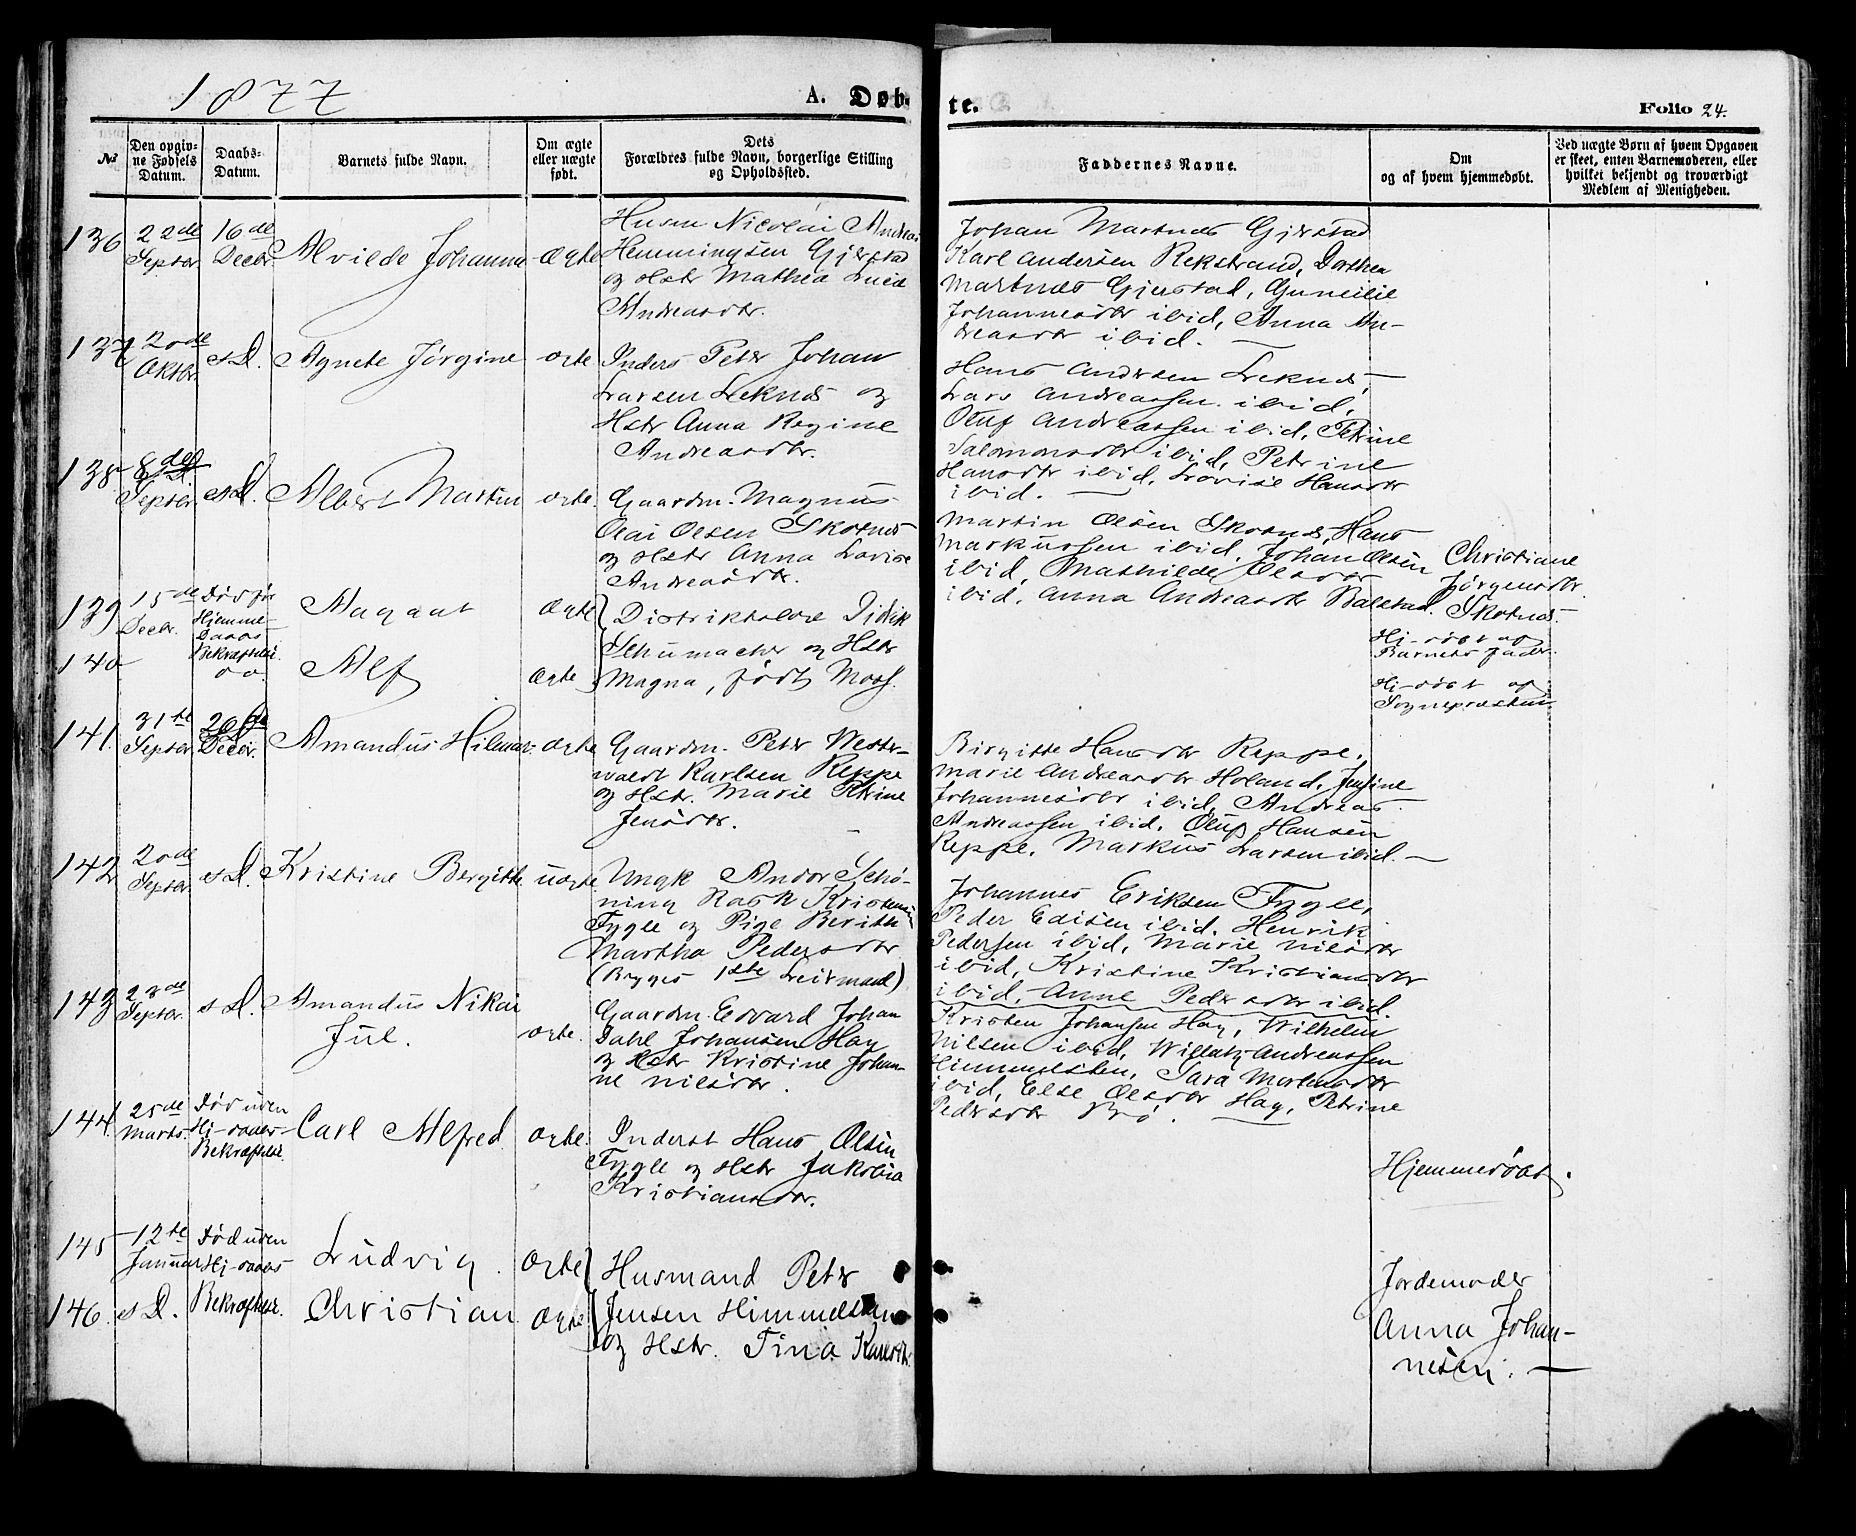 1877
A. Døb-
te.
Folio 24.
No
Den opgiv-
ne Fødsels
Datum.
Daabs-
Datum.
Barnets fulde Navn.
Om ægte
eller uægte
født.
Dets
Forældres fulde Navn, borgerlige Stilling
og Opholdssted.
Faddernes Navne.
Om
og af hvem hjemmedøbt.
Ved uægte Børn af hvem Opgaven
er skeet, enten Barnemoderen, eller
hvilket bekjendt og troværdigt
Medlem af Menigheden.
136
22de
Septbr.
16de
Decbr.
Alvilde Johanna
ægte
Husm Nicolai Andreas
Hemmingsen Gjerstad
og Hstr Mathea Lucie
Andreasdtr.
Johan Martnes Gjerstad
Karl Andersen Rekstrand, Dorthea
Martnes Gjerstad, Guneilie
Johannesdtr ibid, Anna An-
dreasdtr ibid. —
137
20de
Oktbr.
s.D.
Agnete Jørgine
ægte
Inders Peter Johan
Larsen Leknes og
Hstr Anna Regine
Andreasdtr.
Hans Andersen Leknes,
Lars Andreassen ibid,
Oluf Andreassen ibid, Petrine
Salomonsdtr ibid, Petrine
Hansdtr ibid, Lovise Hansdtr
ibid. —
138
8de
Septbr.
s.D.
Albert Martin
ægte.
Gaardm. Magnus
Olai Olsen Skotnes
og Hstr Anna Lovise
Andreasdtr.
Martin Olsen Skotnes, Hans
Markussen ibid, Johan Olsen
ibid, Mathilde Olsdtr
ibid, Anna Andreasdtr Balstad.
Christiane
Jørgensdtr.
Skotnes.
139
15de
Decbr.
Død før
Hjemme-
Daabs
Bekræftelse.
Magaat
ægte
Distriktslæge Didrik
Schumacher og Hstr
Magna, født Moss.
Hj-døbt af
Barnets fader.
140
do.
Alf
ægte
Hj-døbt af
Sognepræsten
141.
31te
Septbr.
26de
Decbr.
Amandus Hilmar
ægte
Gaardm. Peter Wester-
valdt Karlsen Reppe
og Hstr. Marie Petrine
Jensdtr.
Birgitte Hansdtr Reppe,
Marie Andreasdtr Holand, Jensine
Johannesdtr ibid, Andreas
Andreassen ibid, Oluf Hansen
Reppe, Markus Larsen ibid. —
142
20de
Septbr.
s.D.
Kristine Bergitte
uægte
Ungk Andor Schø-
ning Rask Kristensen
Fygle og Pige Berithe
Martha Pedersdtr
(Begges 1ste Leiermaal)
Johannes Eriksen Fygle,
Peder Edisen ibid, Henrik
Pedersen ibid, Marie Nilsdtr
ibid, Kristine Kristiansdtr
ibid, Anne Pedersdtr ibid.
143
23de
Septbr.
s.D.
Amandus Nikai
Jul.
ægte.
Gaardm. Edvard Johan
Dahl Johansen Hag
og Hstr Kristine Johan-
ne Nilsdtr.
Kristen Johansen Hag, Wilhelm
Nilsen ibid, Willatz Andreassen
Himmelsten, Sara Mortensdtr
ibid, Else Olsdtr Hag, Petrine
Pedersdtr Bø. —
144
25de
Marts.
Død uden
Hj-daabs-
Bekræftelse.
Carl Alfred
ægte.
Inderst Hans Olsen
Fygle og Hstr Jakobia
Kristiansdtr.
Hjemmedøbt.
145
12te
Januar
Død uden
Hj-daabs
Bekræftelse.
Ludvig.
ægte
Husmand Peter
Jensen Himmelsten
og Hstr. Tina Karlsdtr.
Jordemoder
Anna Johan-
nesen. —
146.
s.D.
Christian
ægte